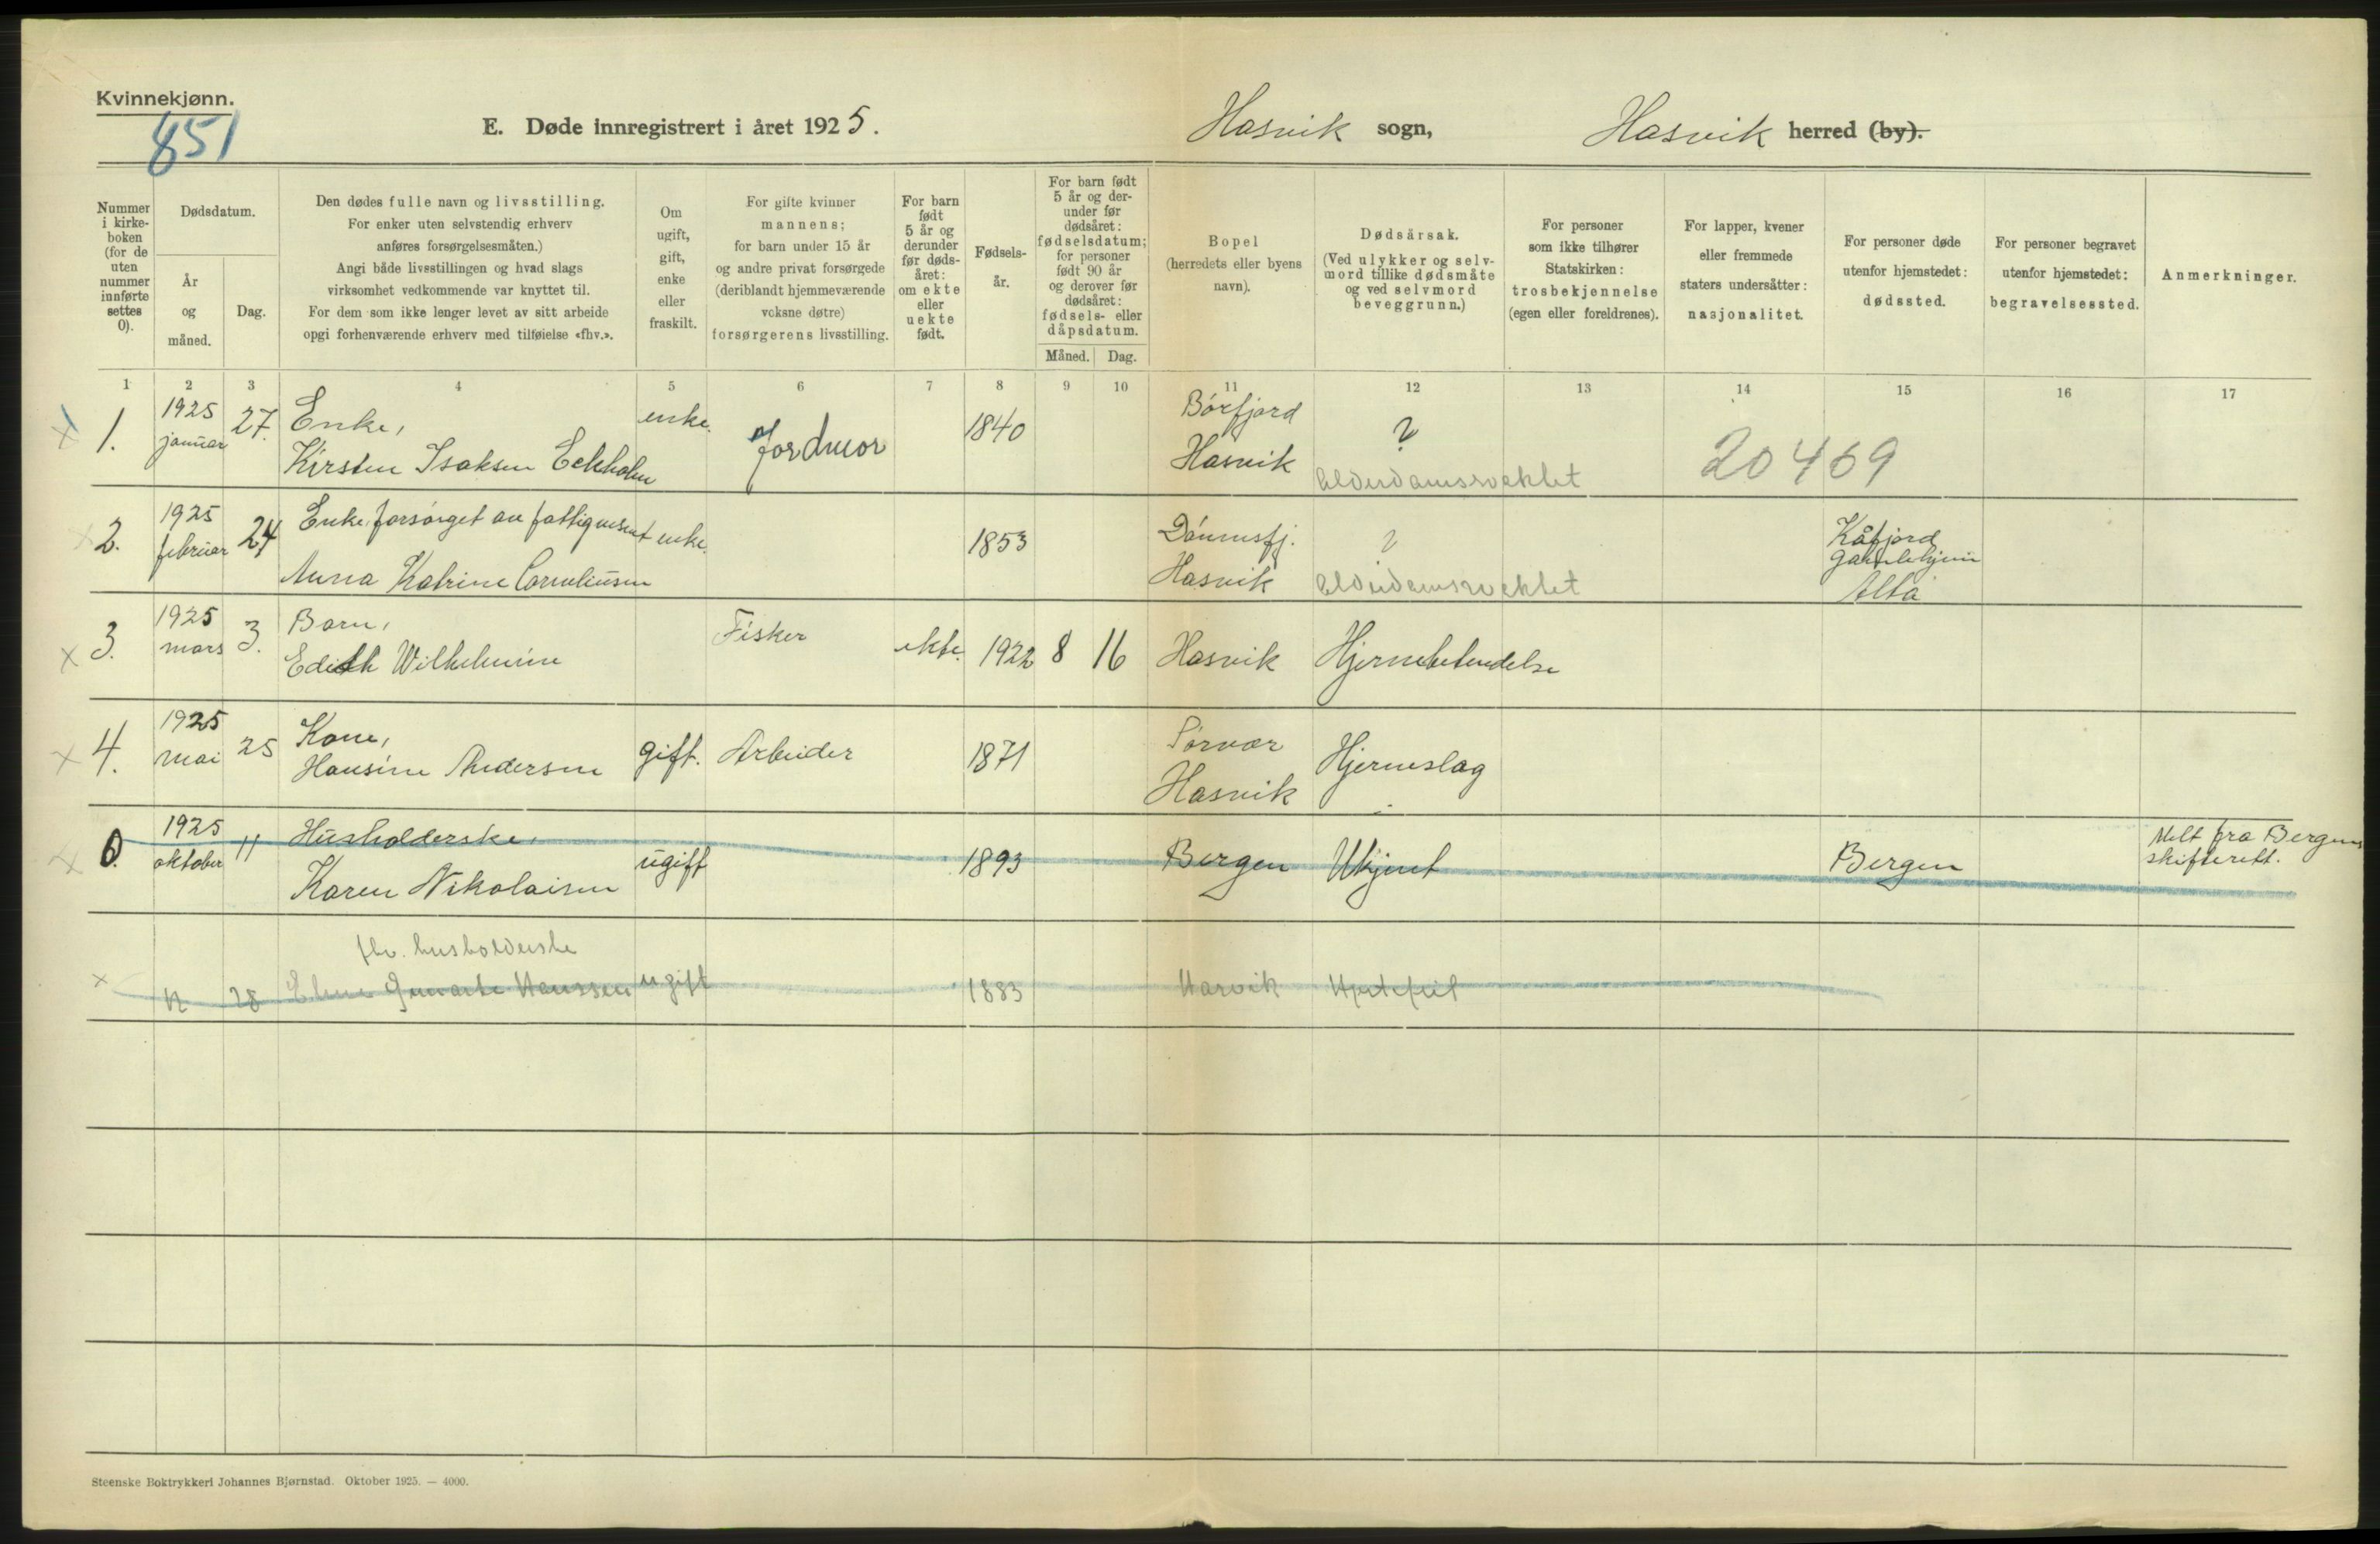 Kvinnekjønn.
851
E. Døde innregistrert i året 1925.
Hasvik sogn,
Hasvik herred (by).
Nummer i kirke-boken (for de uten nummer innførte settes 0).
Dødsdatum.
År og måned.
Dag.
Den dødes fulle navn og livsstilling.
For enker uten selvstendig erhverv
anføres forsørgelsesmåten.)
Angi både livsstillingen og hvad slags
virksomhet vedkommende var knyttet til.
For dem som ikke lenger levet av sitt arbeide
opgi forhenværende erhverv med tilføielse «fhv.».
Om ugift, gift, enke eller fraskilt.
For gifte kvinner
mannens;
for barn under 15 år
og andre privat forsørgede
(deriblandt hjemmeværende
voksne døtre)
forsørgerens livsstilling.
For barn født 5 år og derunder før døds-året: om ekte eller uekte født.
Fødsels-år.
For barn født 5 år og der-under før dødsåret: fødselsdatum; for personer født 90 år og derover før dødsåret: fødsels- eller dåpsdatum.
Måned. Dag.
Bopel
(herredets eller byens
navn).
Dødsårsak.
(Ved ulykker og selv-
mord tillike dødsmåte
og ved selvmord
beveggrunn.)
For personer
som ikke tilhører
Statskirken:
trosbekjennelse
(egen eller foreldrenes).
For lapper, kvener
eller fremmede
staters undersåtter:
nasjonalitet.
For personer døde
utenfor hjemstedet:
dødssted.
For personer begravet
utenfor hjemstedet:
begravelsessted.
Anmerkninger.
1 2 3 4 5 6 7 8 9 10 11 12 13 14 15 16 17
x 1. 1925 januar 27. Enke,
Kirsten Isaksen Eckholm
enke. Jordmor 1840 Børfjord
Hasvik
?
alderdomssvekket
20469
x 2. 1925 februar 24 Enke, forsørget av fattigvesenet
Anna Katrine Corneliusen
enke. 1853 Dønnesfj.
Hasvik
?
alderdomssvekket
Kåfjord
gamlehjem
Alta
x 3. 1925 mars 3. Barn,
Edith Wilhelmine
Fisker ekte. 1922 8 16 Hasvik Hjernebetendelse
x 4. 1925 mai 25 Kone,
Hansine Andersen
gift. Arbeider 1871 Sørvær
Hasvik
Hjerneslag
x 0. 1925 oktober 11 Husholderske,
Karen Nikolaisen
ugift 1893 Bergen Ukjent Bergen Melt fra Bergens
skifterett.
fhv. husholderske
x 12 28 Hanssen ugift 1883 Hasvik Hjertefeil
Steenske Boktrykkeri Johannes Bjørnstad. Oktober 1925. — 4000.